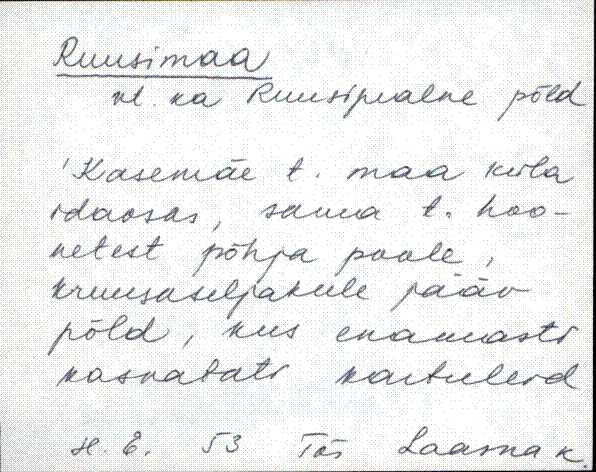 Ruusimaa
vt. ka Ruusipealne põld
'Kasemäe t. maa küla
idaosas, sama t. hoo-
netest põhja poole,
kruusaseljakule jääv
põld, kus enamasti
kasvatati kartuleid
H. E. 53 Tõs Laasma k.